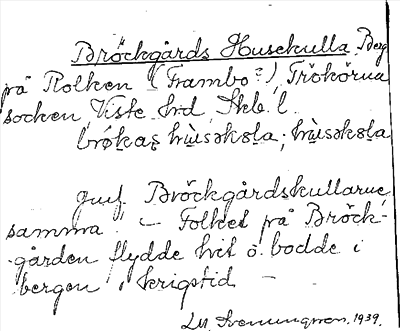 Bröckgårds Husekulla Berg
på Rolken (Frambo?), Trökörna
socken, Viste hrd, Skb. l.
brøkas hùsəkəla; hùsəkəla
Bröckgårdskullarne,
samma. — Folket på Bröck-
gården flydde hit o. bodde i
bergen i krigstid —
1939.